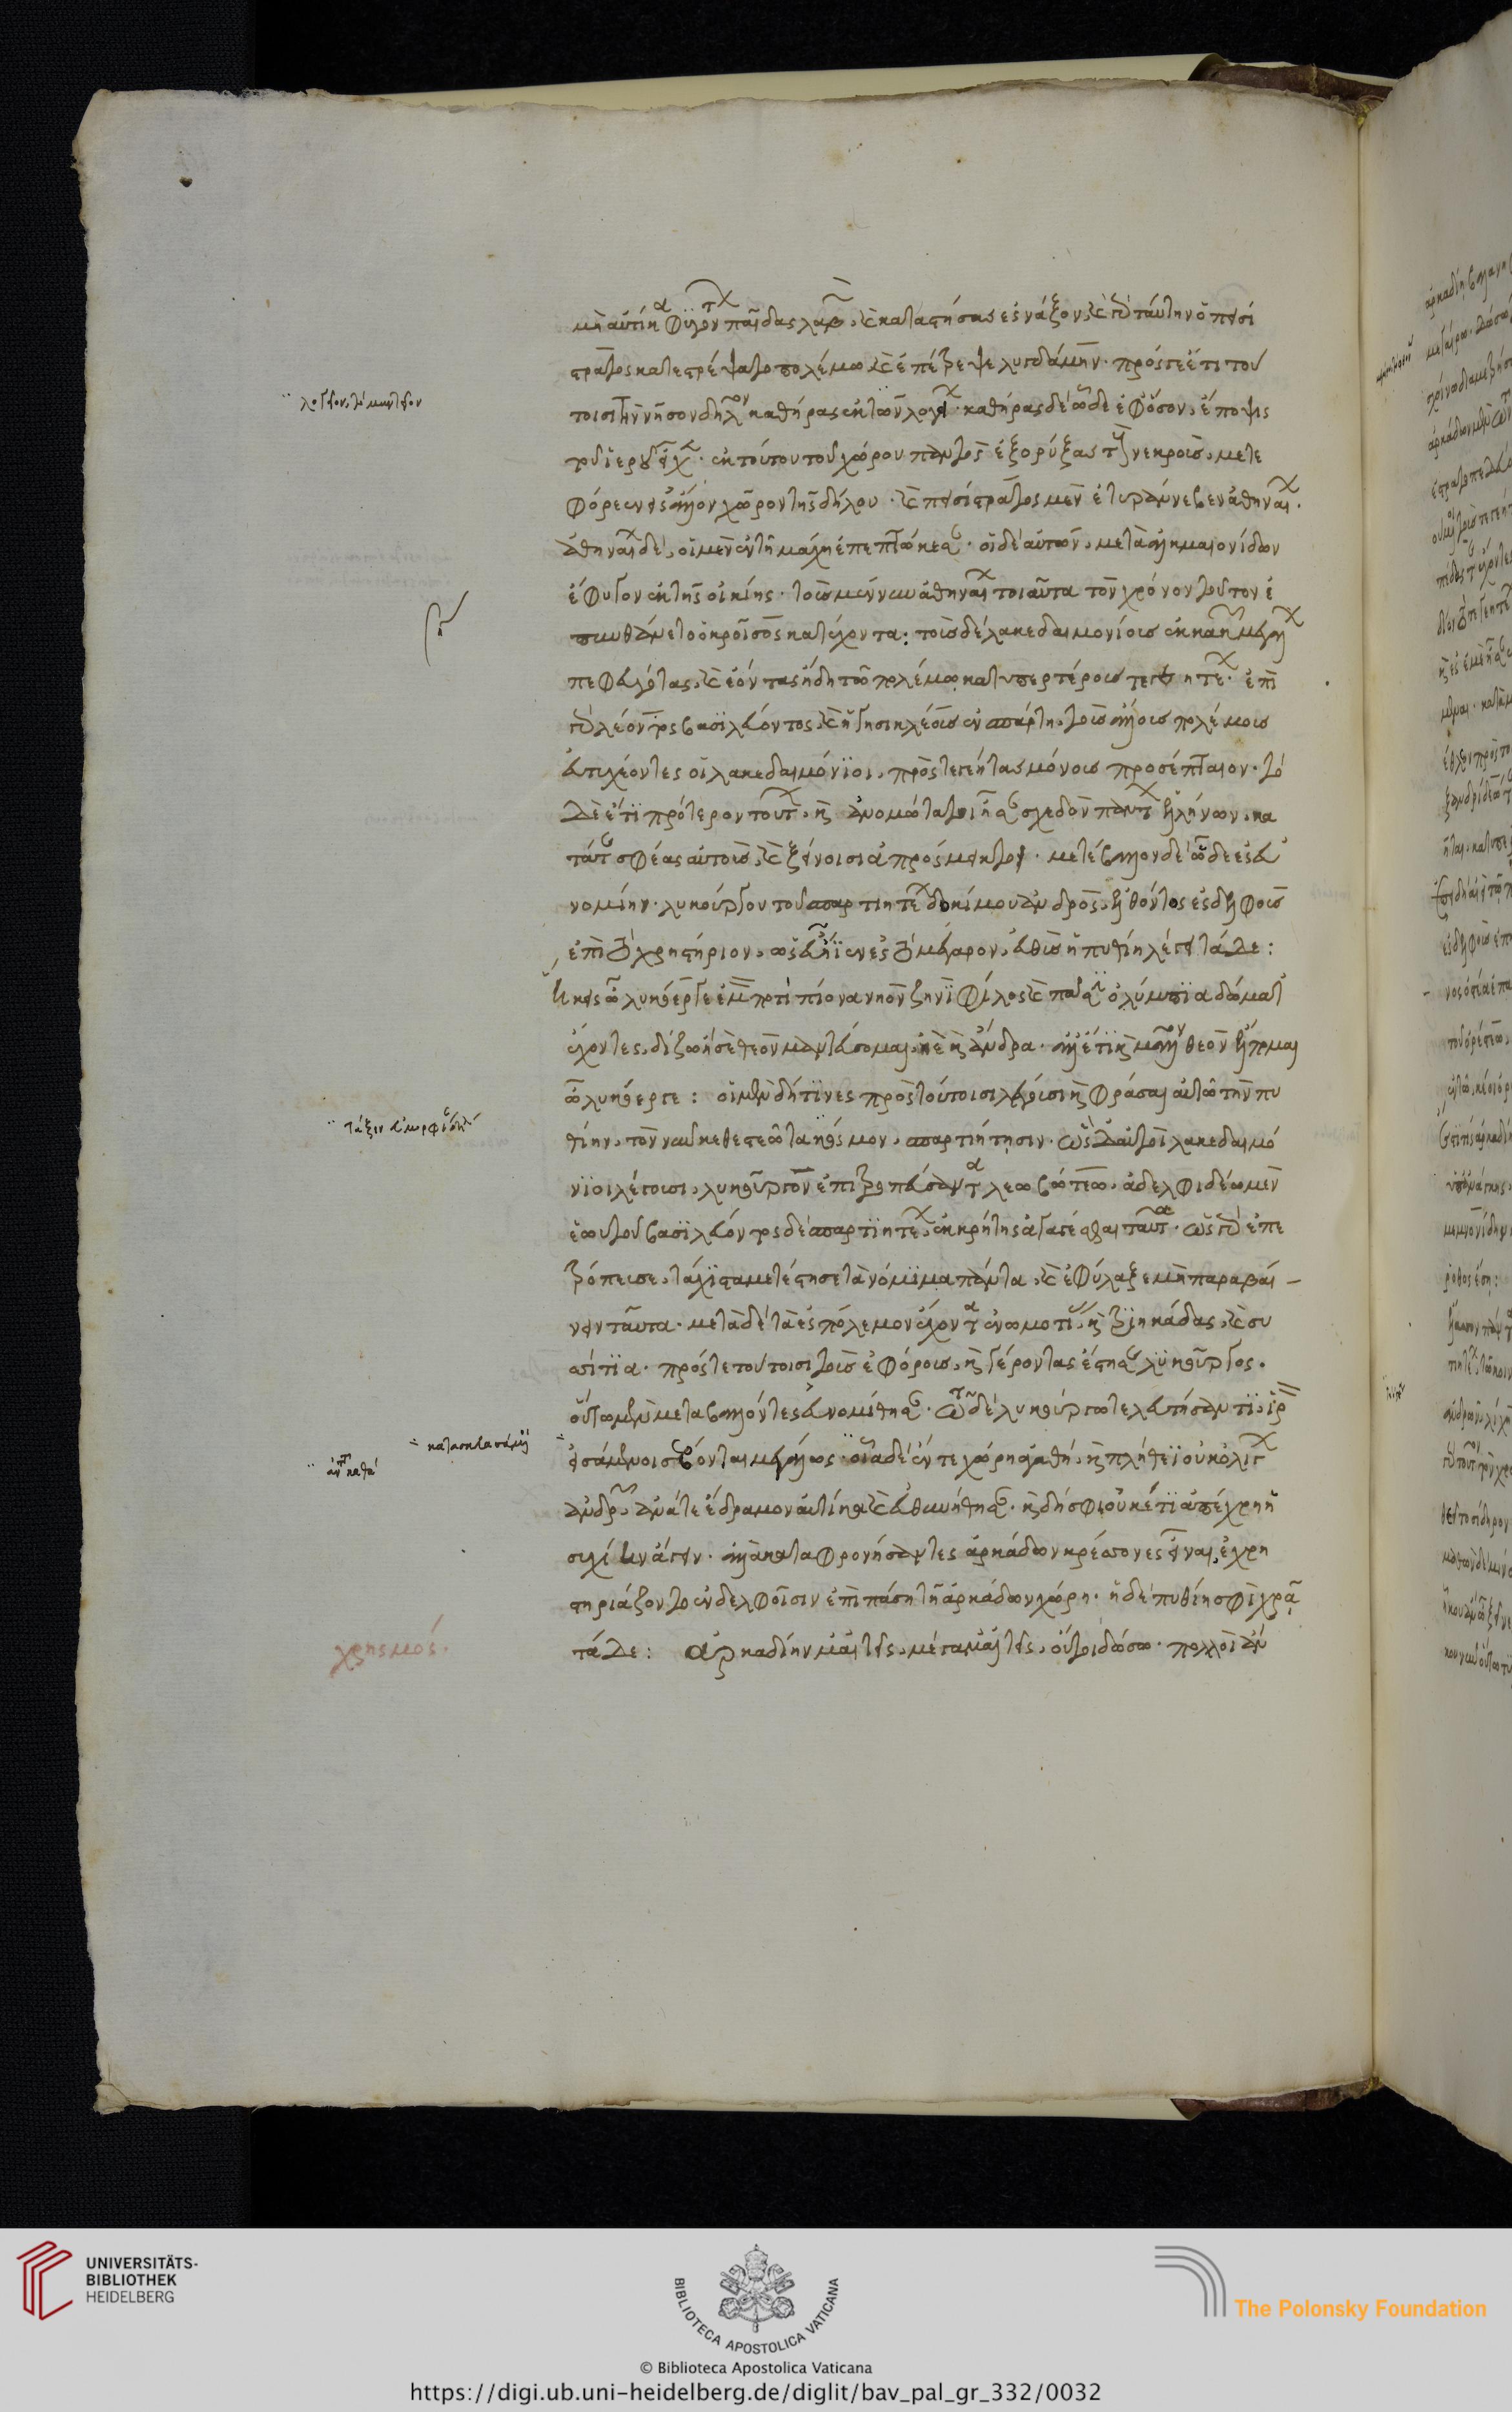 μὴ αὐτίκα φυγόντων παῖδας λαβὼν, καὶ καταστήσας ἐς νάξον, καὶ γὰρ ταύτην ὁ πεισί
στρατος κατεστρέψατο πολέμω καὶ ἐπέτρεψε λυγδάμην. πρός γε ἔτι τού
λογίων, τῶν μαντείων
τοισι τὴν νῆσον δῆλον καθήρας ἐκ τῶν λογίων. καθήρας δὲ ὧδε ἐφ' ὅσον ἔποψις
τοῦ ἱεροῦ εἶχε. ἐκ τούτου τοῦ χώρου παντὸς ἐξορύξας τοὺς νεκροὺς, μετε
φόρεεν ἐς ἄλλον χῶρον τῆς δήλου. καὶ πεισίστρατος μὲν ἐτυράννευεν ἀθηναίων.
ἀθηναίων δὲ, οἱ μὲν ἐν τῆ μάχη ἐπεπτώκεσαν. οἱ δὲ αὐτῶν, μετὰ ἀλκμαιονίδων
ἔφυγον ἐκ τῆς οἰκίης. τοὺς μέν νυν ἀθηναίους τοιαῦτα τὸν χρόνον τοῦτον ἐ
πυνθάνετο ὁ κροῖσος κατέχοντα: τοὺς δὲ λακεδαιμονίους ἐκ κακῶν μεγάλων
πεφευγότας, καὶ ἐόντας ἤδη τῶ πολέμω κατυπερτέρους τεγεητέων. ἐπὶ
γὰρ λέοντος βασιλεύοντος, καὶ ἡγησικλέους ἐν σπάρτη, τοὺς ἄλλους πολέμους
εὐτυχέοντες οἱ λακεδαιμόνιοι, πρὸς τεγεήτας μόνους προσέπταιον. τὸ
δὲ ἔτι πρότερον τούτων, καὶ ἀνομώτατοι ἦσαν σχεδὸν πάντων ἑλλήνων, κα
τά τε σφέας αὐτοὺς, καὶ ξείνοισι ἀπρόσμεικτοι. μετέβαλλον δὲ ὧδε ἐς εὐ
νομίην. λυκούργου τοῦ σπαρτιητέων δοκίμου ἀνδρὸς, ἐλθόντος ἐς δελφοὺς
ἐπὶ τὸ χρηστήριον, ὡς ἤϊεν ἐς τὸ μέγαρον, εὐθὺς ἡ πυθίη λέγει τάδε:
ἥκεις ὦ λυκόεργε ἐμὸν ποτὶ πίονα νηὸν ζηνὶ φίλος καὶ πᾶσιν ὀλύμπια δώματ'
ἔχοντες, δίζω ἤ σε θεὸν μαντεύσομαι, ἠὲ καὶ ἄνδρα. ἀλλ' ἔτι καὶ μᾶλλον θεὸν ἔλπομαι
ὦ λυκόεργε: οἱ μὲν δή τινες πρὸς τούτοισι λέγουσι καὶ φράσαι αὐτῶ τὴν πυ
τάξιν
θίην, τὸν νῦν κατεστεῶτα κόσμον, σπαρτιήτησιν. ὡς δ' αὐτοὶ λακεδαιμό
νιοι λέγουσι, λυκοῦργον ἐπιτροπεύσαντα λεωβώτεω, ἀδελφιδέω μὲν
ἑωυτοῦ βασιλεύοντος δὲ σπαρτιητέων, ἐκ κρήτης ἀγαγέσθαι ταῦτα. ὡς γὰρ ἐπε
τρόπευσε, τάχιστα μετέστησε τὰ νόμιμα πάντα, καὶ ἐφύλαξε μὴ παραβαί
νειν ταῦτα. μετὰ δὲ τὰ ἐς πόλεμον ἔχοντα ἐνωμοτίας, καὶ τριηκάδας, καὶ συ
σίτια. πρός τε τούτοισι τοὺς ἐφόρους, καὶ γέροντας ἔστησε λυκοῦργος.
οὕτω μὲν μεταβαλόντες εὐνομήθησαν. τῶ δὲ λυκούργω τελευτήσαντι, ἱρὸν
κατασκευασάμενοι
εἱσάμενοι σέβονται μεγάλως. οἷα δὲ ἔν τε χώρη ἀγαθῆ, καὶ πλήθεϊ οὐκ ὀλίγων
ἀνδρῶν, ἀνά τε ἔδραμον αὐτίκα καὶ εὐθηνήθησαν. καὶ δή σφι οὐκέτι ἀπέχρη ἡ
συχίην ἄγειν. ἀλλὰ καταφρονήσαντες ἀρκάδων κρέσσονες εἶναι, ἐχρη
στηριάζοντο ἐν δελφοῖσιν ἐπὶ πάση τῆ ἀρκάδων χώρη. ἡ δὲ πυθίη σφὶ χρᾶ
χρησμός.
τάδε: ἀρκαδίην μ' αἰτεῖς, μέγα μ' αἰτεῖς, οὔτοι δώσω. πολλοὶ ἐν
UNIVERSITÄTS-
BIBLIOTHEK
HEIDELBERG
BIBLIOTECA APOSTOLICA VATICANA
The Polonsky Foundation
© Biblioteca Apostolica Vaticana
https://digi.ub.uni-heidelberg.de/diglit/bav_pal_gr_332/0032